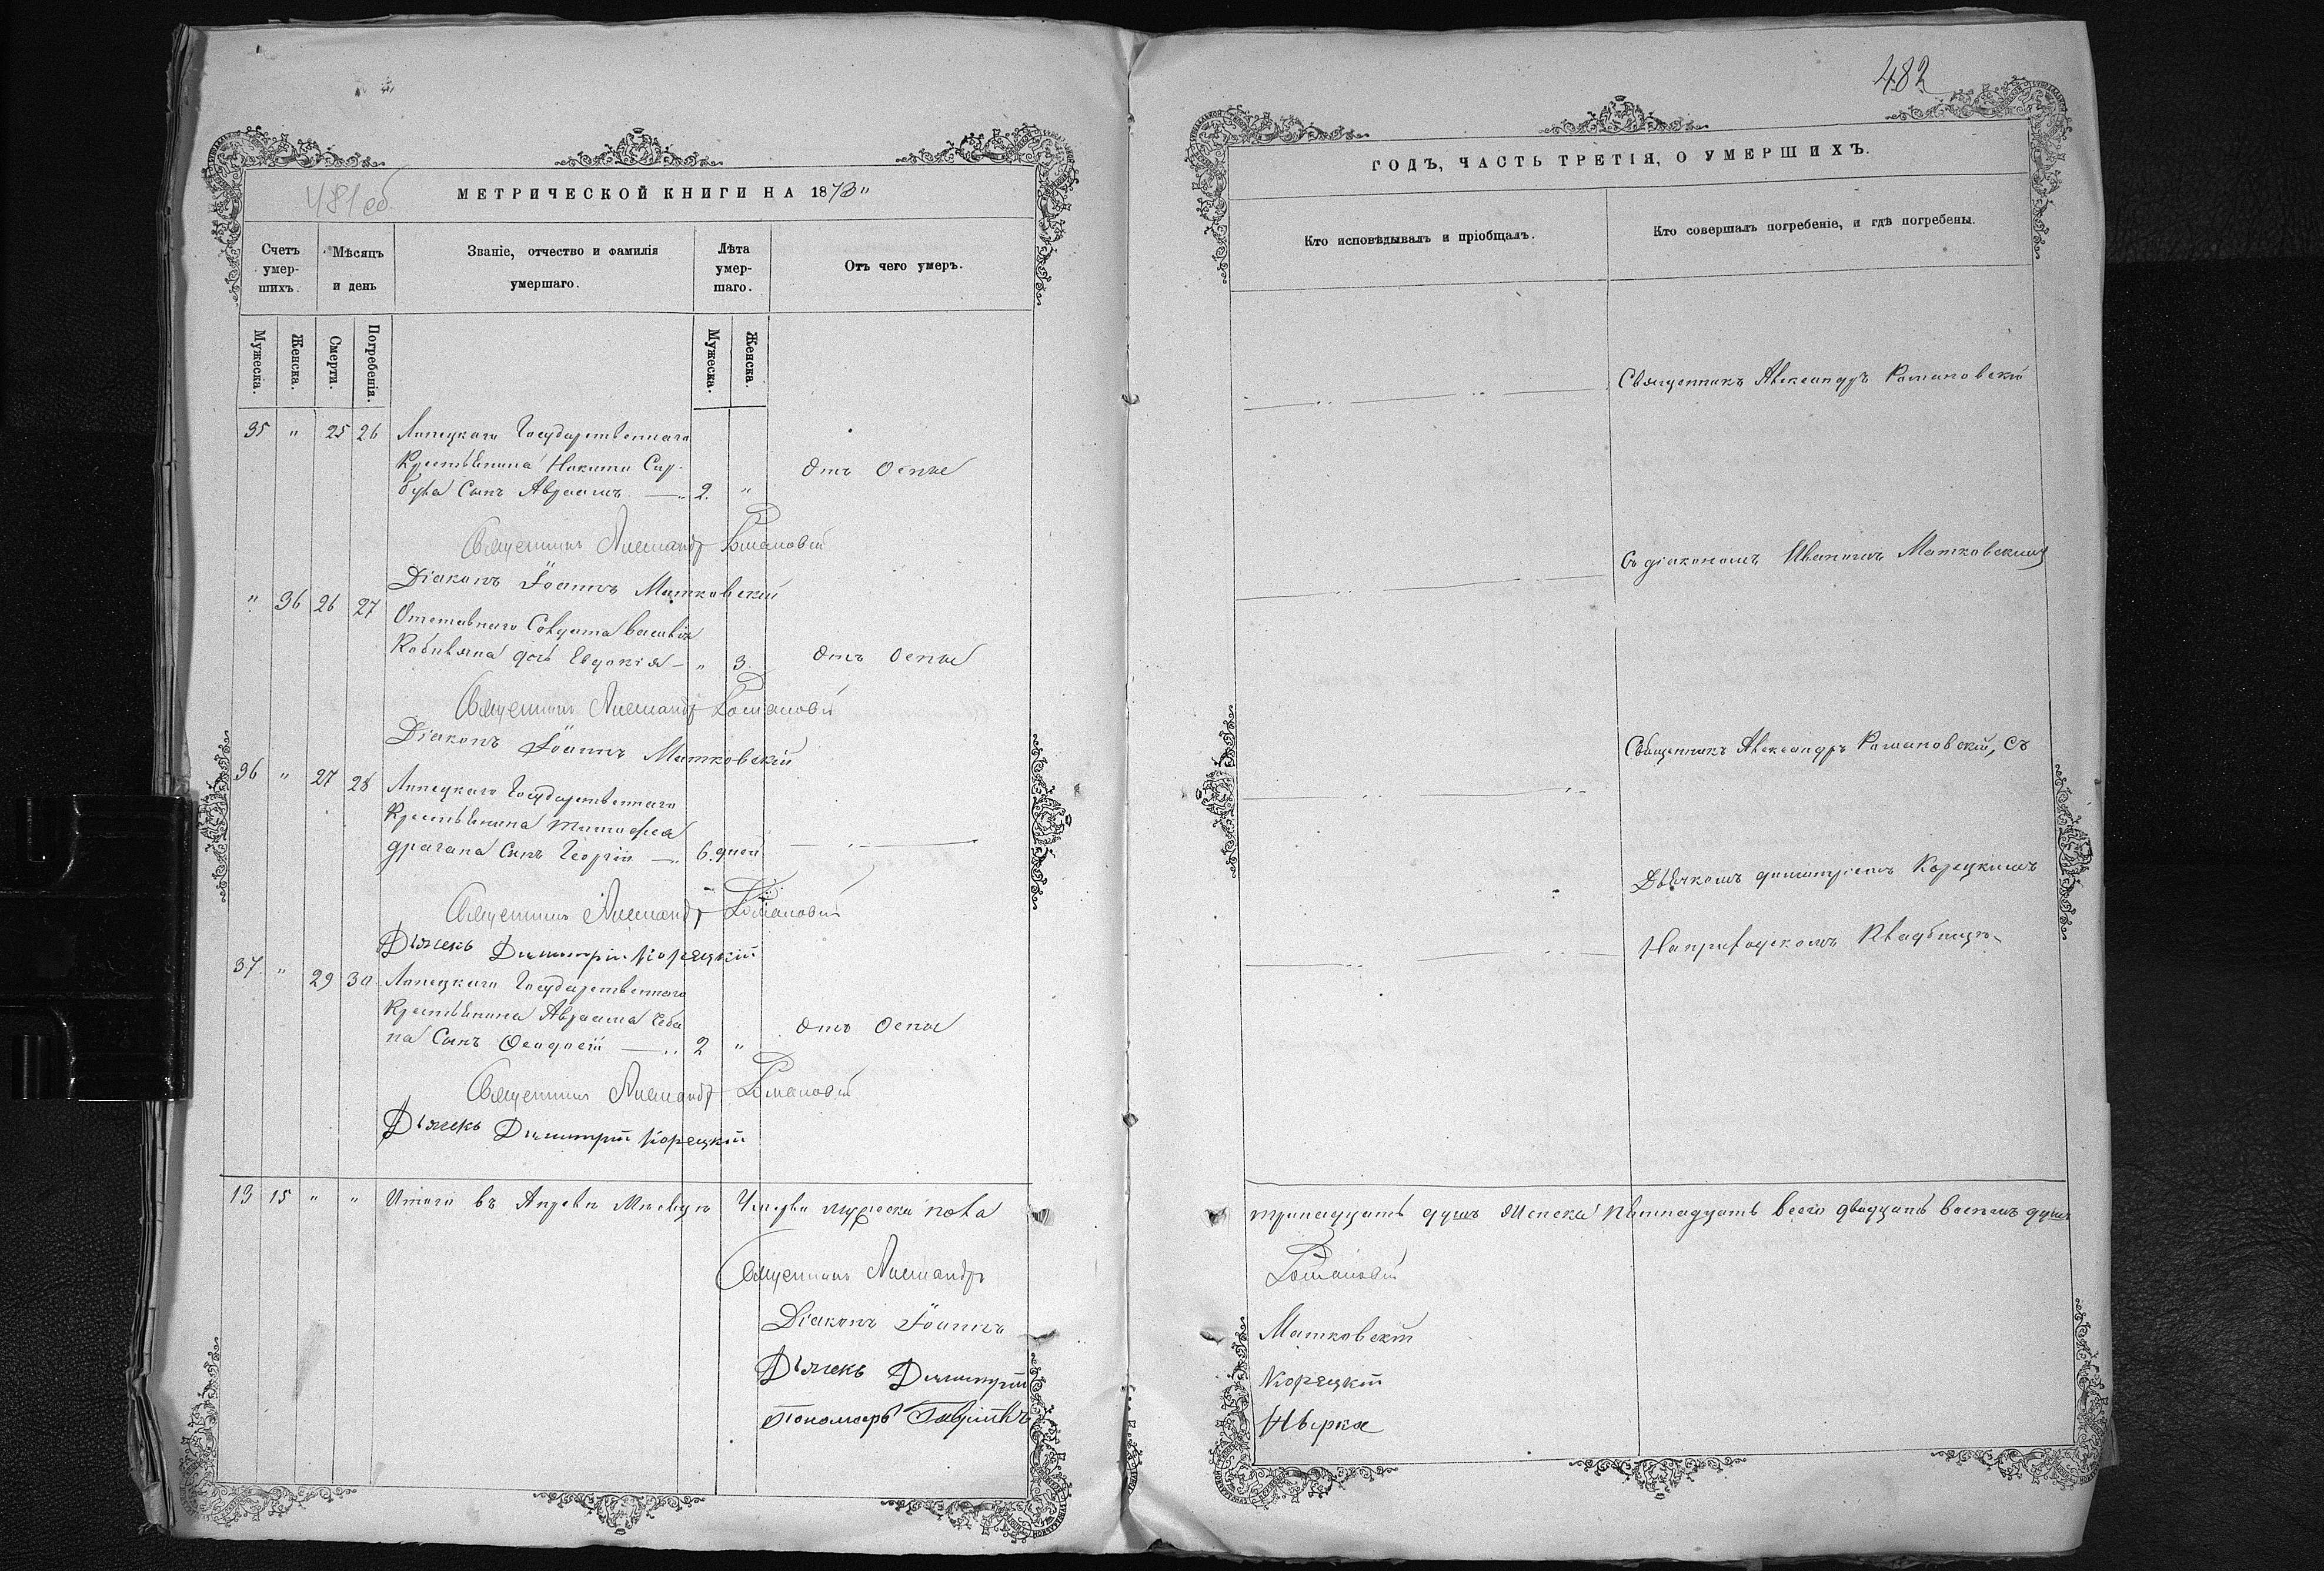 481 об
МЕТРИЧЕСКОЙ КНИГИ НА 1873"
Счетъ умер-шихъ.
Мѣсяцъ и день
Званіе, отчество и фамилія умершаго.
Лѣта умер-шаго.
Отъ чего умеръ.
Мужеска.
Женска.
Смерти.
Погребенія.
Мужеска.
Женска.
35 " 25 26 Липецкаго Государственнаго
Крестьянина Никиты Сыр-
була Сынъ Авраамъ — 2. " Отъ Оспы
Священникъ Александръ Романовскій
Діаконъ Іоаннъ Матковскій
" 36 26 27 Отставнаго Солдата Василія
Кобиляна дочь Евдокія — " 3. Отъ Оспы
Священникъ Александръ Романовскій
Діаконъ Іоаннъ Матковскій
36 " 27 28 Липецкаго Государственнаго
Крестьянина Тимофея
Драгана Сынъ Георгій — 6. дней — " —
Священникъ Александръ Романовскій
Дьячекъ Димитрій Корецкій
37. " 29 30 Липецкаго Государственнаго
Крестьянина Авраама Чеба
на Сынъ Феодосій — 2 " Отъ Оспы
Священникъ Александръ Романовскій
Дьячекъ Димитрій Корецкій
13 15 " " Итого въ Апрелѣ Мѣсяцѣ Умерло мужеска пола
Священникъ Александръ
Діаконъ Іоаннъ
Дьячекъ Димитрій
Пономарь Гавріилъ
482
ГОДЪ, ЧАСТЬ ТРЕТІЯ, О УМЕРШИХЪ.
Кто исповѣдывалъ и пріобщалъ.
Кто совершалъ погребеніе, и гдѣ погребены.
Священникъ Александръ Романовскій
Съ діакономъ Иваномъ Матковскимъ
Священникъ Александръ Романовскій, съ
Дьячкомъ Димитріемъ Корецкимъ
На приходскомъ Кладбищѣ
тринадцать душъ Женска пятнадцать всего двадцать восемь душъ
Романовскій
Матковскій
Корецкій